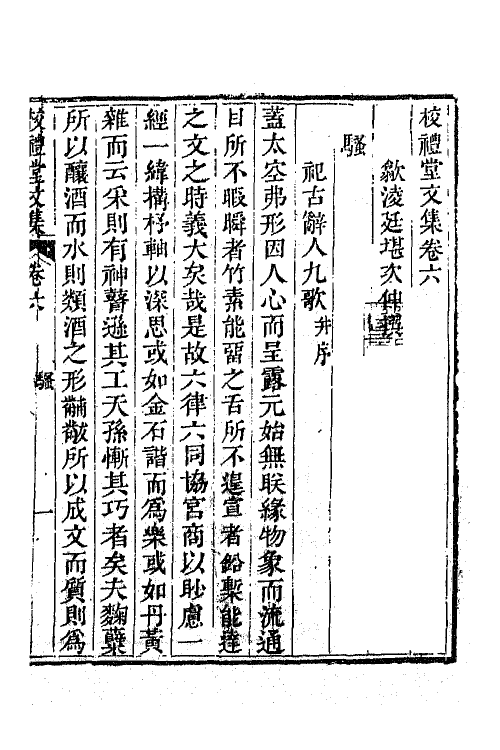 校禮堂文集卷六
歙淩廷堪次仲撰
騷
祀古辭人九歌 并序
蓋太空弗形因人心而呈露元始無朕緣物象而流通
目所不暇瞬者竹素能畱之舌所不遑宣者鉛槧能達
之文之時義大矣哉是故六律六同協宮商以眇慮一
經一緯構杼軸以深思或如金石諧而爲樂或如丹黃
雜而云采則有神瞽遜其工天孫慚其巧者矣夫麴糵
所以釀酒而水則類酒之形黼黻所以成文而質則爲
校禮堂文集 卷六 騷 一